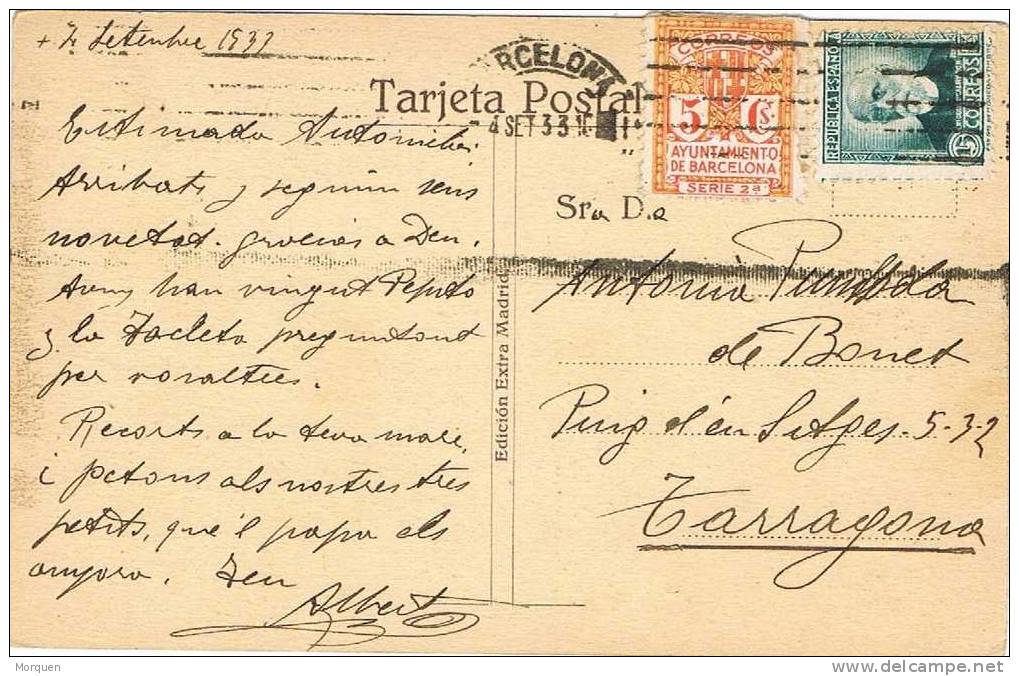 Setembre 1933
BARCELONA
4 SET 33
Tarjeta Postal
CORREOS
5 Cs.
AYUNTAMIENTO
DE BARCELONA
SERIE 2ª
REPUBLICA ESPAÑOLA
CORREOS
15
Estimada
Arribats y seguim sens
novetat. gracias a Deu.
Avuy han vingut Pepito
y la Tecleta preguntant
per vosaltres.
Recorts a la teva mare,
i petons als nostres tres
petits, que 'l papa els
anyora. Teu
Albert
Edición Extra Madrid
Sra D.a
Antonia
de Bonet
Puig d'en Sitges. 5-3-2
Tarragona
Morquen
delcampe.net